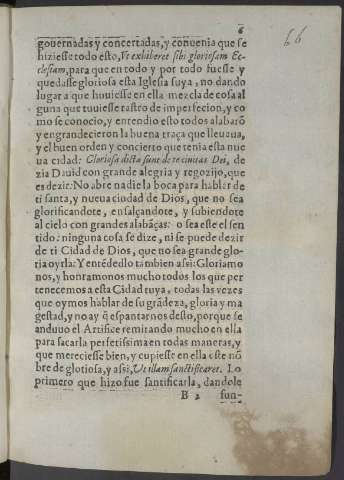 6
66
gouernadas y concertadas, y conuenia que se
hiziesse todo esto, Vt exhiberet sibi gloriosam Ec-
clesiam, para que en todo y por todo fuesse y
quedasse gloriosa esta Iglesia suya, no dando
lugar a que huuiesse en ella mezcla de cosa al
guna que tuuiesse rastro de imperfecion, y co
mo se conocio, y entendio esto todos alabarõ
y engrandecieron la buena traça que lleuaua,
y el buen orden y concierto que tenia esta nue
ua cidad: Gloriosa dicta sunt de te ciuitas Dei, de
zia Dauid con grande alegria y regozijo, que
es dezir: No abre nadie la boca para hablar de
ti santa, y nueua ciudad de Dios, que no sea
glorificandote, ensalçandote, y subiendote
al cielo con grandes alabãças: o sea este el sen
tido: ninguna cosa se dize, ni se puede dezir
de ti Cidad de Dios, que no sea grande glo-
ria oyrla: Y entẽdedlo tambien assi: Gloriamo
nos, y honramonos mucho todos los que per
tenecemos a esta Cidad tuya, todas las vezes
que oymos hablar de su grãdeza, gloria y ma
gestad, y no ay q̃ espantarnos desto, porque se
anduuo el Artifice remirando mucho en ella
para sacarla perfetissima en todas maneras, y
que mereciesse bien, y cupiesse en ella este nõ
bre de gloriosa, y assi, Vt illam sanctificaret. Lo
primero que hizo fue santificarla, dandole
B 2 fun-